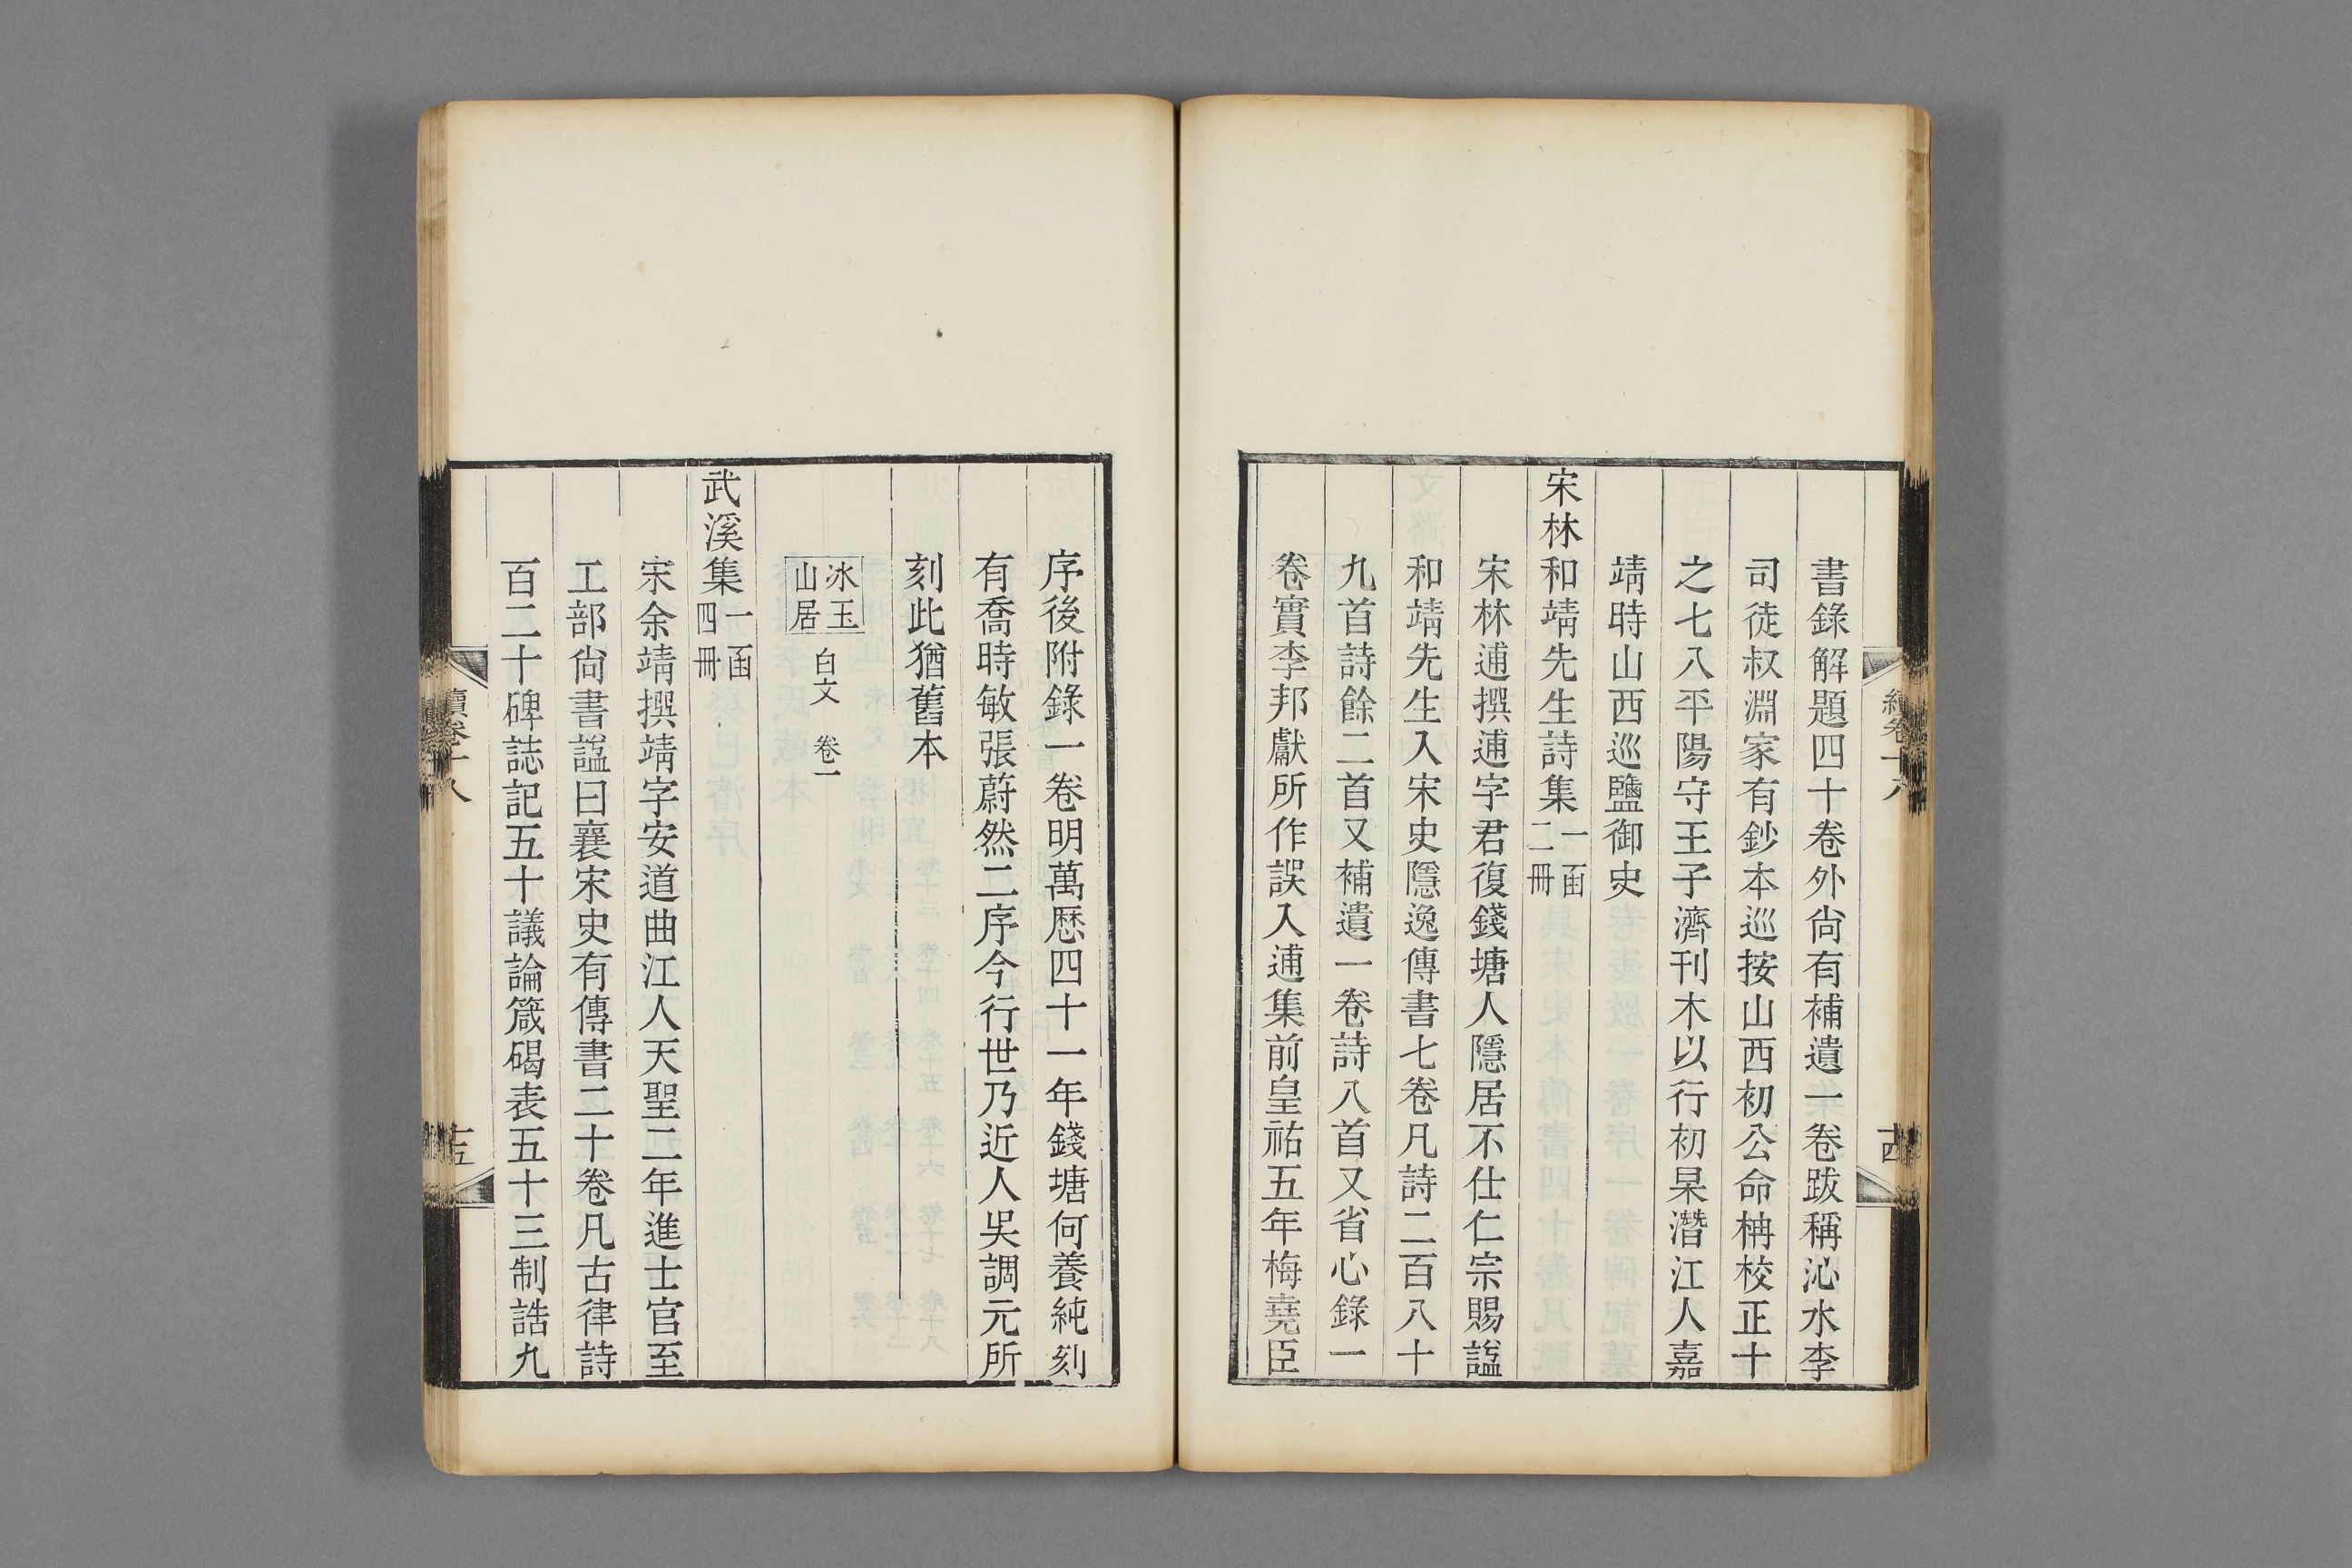 書錄解題四十卷外尙有補遺一卷跋稱沁水李
司徒叔淵家有鈔本巡按山西初公命柟校正十
之七八平陽守王子濟刊木以行初杲潛江人嘉
靖時山西巡鹽御史
宋林和靖先生詩集一函二冊
宋林逋撰逋字君復錢塘人隱居不仕仁宗賜諡
和靖先生入宋史隱逸傳書七卷凡詩二百八十
九首詩餘二首又補遺一卷詩八首又省心錄一
卷實李邦獻所作誤入逋集前皇祐五年梅堯臣
續卷十八
十四
序後附錄一卷明萬歷四十一年錢塘何養純刻
有喬時敏張蔚然二序今行世乃近人吳調元所
刻此猶舊本
冰玉山居 白文 卷一
武溪集一函四冊
宋余靖撰靖字安道曲江人天聖二年進士官至
工部尙書諡曰襄宋史有傳書二十卷凡古律詩
百二十碑誌記五十議論箴碣表五十三制誥九
續卷十八
十五